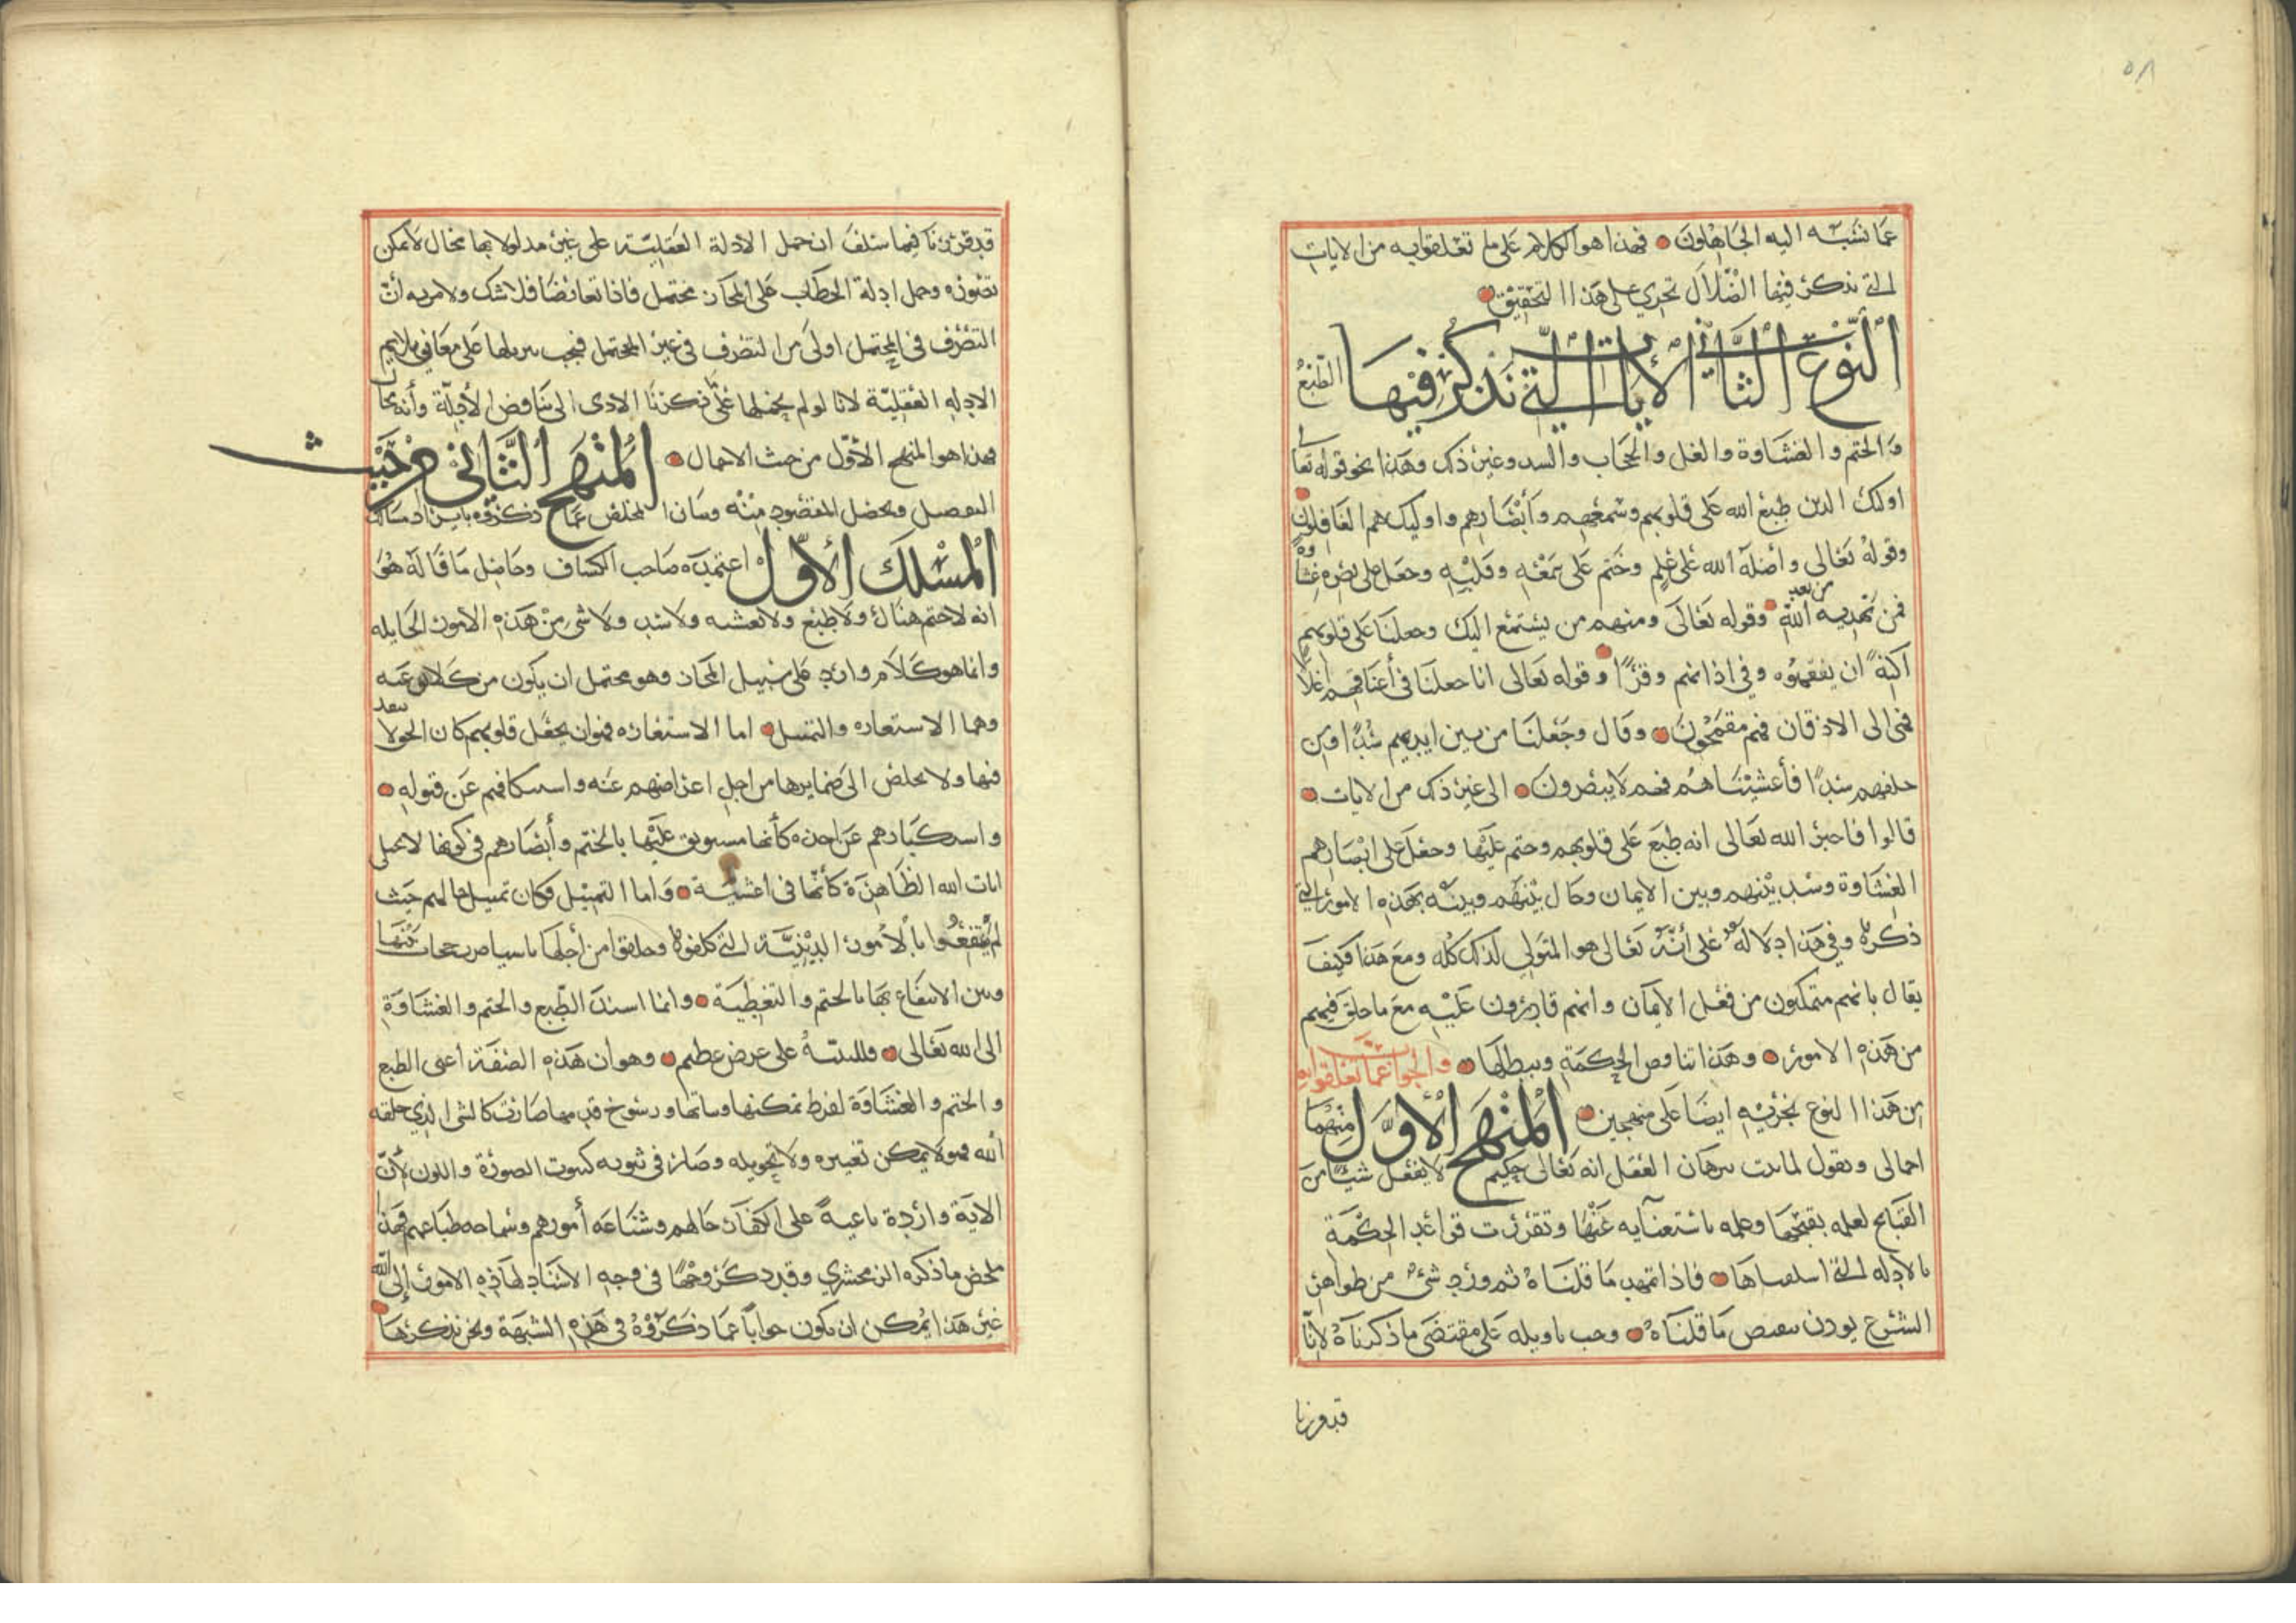 ٥٨
عما نسبه اليه الجاهلون فهذا هو الكلام على ما تعلقوا به من الايات
التي نذكر فيها الضلال تجري على هذا التحقيق
النوع الثاني الايات التي نذكر فيها الطبع
والختم والغشاوة والغل والحجاب والسد وغير ذلك وهذا نحو قوله تعالى
اولئك الذين طبع الله على قلوبهم وسمعهم وأبصارهم واولئك هم الغافلون
وقوله تعالى وأضله الله على علم وختم على سمعه وقلبه وجعل على بصره غشاوة
فمن يهديه من بعد الله وقوله تعالى ومنهم من يستمع اليك وجعلنا على قلوبهم
اكنة ان يفقهوه وفي اذانهم وقرا وقوله تعالى انا جعلنا في أعناقهم اغلالا
فهي الى الاذقان فهم مقمحون وقال وجعلنا من بين ايديهم سدا ومن
خلفهم سدا فأغشيناهم فهم لا يبصرون الى غير ذلك من الايات
قالوا فاخبر الله تعالى انه طبع على قلوبهم وختم عليها وجعل على ابصارهم
الغشاوة وسد بينهم وبين الايمان وحال بينهم وبينه بهذه الامور التي
ذكرها وفي هذا دلالة على أنه تعالى هو المتولي لذلك كله ومع هذا فكيف
يقال بانهم متمكنون من فعل الايمان وانهم قادرون عليه مع ما خلق فيهم
من هذه الامور وهذا يناقض الحكمة ويبطلها والجواب عما تعلقوا به
من هذا النوع نجريه ايضا على منهجين المنهج الأول منهما
اجمالي ونقول لما ثبت ببرهان العقل انه تعالى حكيم لا يفعل شيئا من
القبائح لعلمه بقبحها وعلمه باستغنائه عنها وتقررت قواعد الحكمة
بالادلة التي اسلفناها فاذا تمهد ما قلناه ثم ورد شيء من ظواهر
الشرع يوذن بنقيض ما قلناه وجب تاويله على مقتضى ما ذكرناه لأنا
قد قررنا
قد قررنا فيما سلف ان حمل الادلة العقلية على غير مدلولاتها محال لا يمكن
تصوره وحمل ادلة الخطاب على المجاز محتمل فاذا تعارضا فلا شك ولا مرية أن
التصرف في المحتمل اولى من التصرف في غير المحتمل فيجب تنزيلها على معاني تلايم
الادلة العقلية لانا لو لم نحملها على ما ذكرنا لادى الى تناقض الأدلة وأنه محال
فهذا هو المنهج الأول من حيث الاجمال المنهج الثاني من حيث
التفصيل وتحصل المقصود منه وبيان المخلص عما ذكروه بايراد مسالك
المسلك الأول اعتمده صاحب الكشاف وحاصل ما قاله هو
انه لا ختم هناك ولا طبع ولا تغشية ولا سد ولا شيء من هذه الامور الحايلة
وانما هو كلام وارد على سبيل المجاز وهو محتمل ان يكون من كلا نوعيه
وهما الاستعارة والتمثيل اما الاستعارة فهو ان يجعل قلوبهم كأن الحق لا ينفذ
فيها ولا يخلص الى ضمايرها من اجل اعراضهم عنه واستنكافهم عن قبوله
واستكبارهم عن اخذه كأنها مستوثق عليها بالختم وأبصارهم في كونها لا تجتلي
ايات الله الظاهرة كأنها في اغشية وأما التمثيل فكان تمثيل حالهم حيث
لم ينتفعوا بالأمور الدينية التي كلفوها وخلقوا من أجلها باشيا ضرب حجاب بينها
وبين الانتفاع بها بالختم والتغطية وانما اسند الطبع والختم والغشاوة
الى الله تعالى فللتنبيه على غرض عظيم وهو ان هذه الصفة أعني الطبع
والختم والغشاوة لفرط تمكنها وثباتها ورسوخ قدمها صارت كالشي الذي خلقه
الله فهو لا يمكن تغييره ولا تحويله وصار في ثبوته كثبوت الصورة واللون لأن
الاية واردة ناعية على الكفار حالهم وشناعة أمورهم وسماجة طباعهم فهذا
ملخص ما ذكره الزمخشري وقد ذكر وجها في وجه الاسناد لهذه الامور إلى الله
غير هذا يمكن ان يكون جوابا عما ذكروه في هذه الشبهة ونحن نذكرها